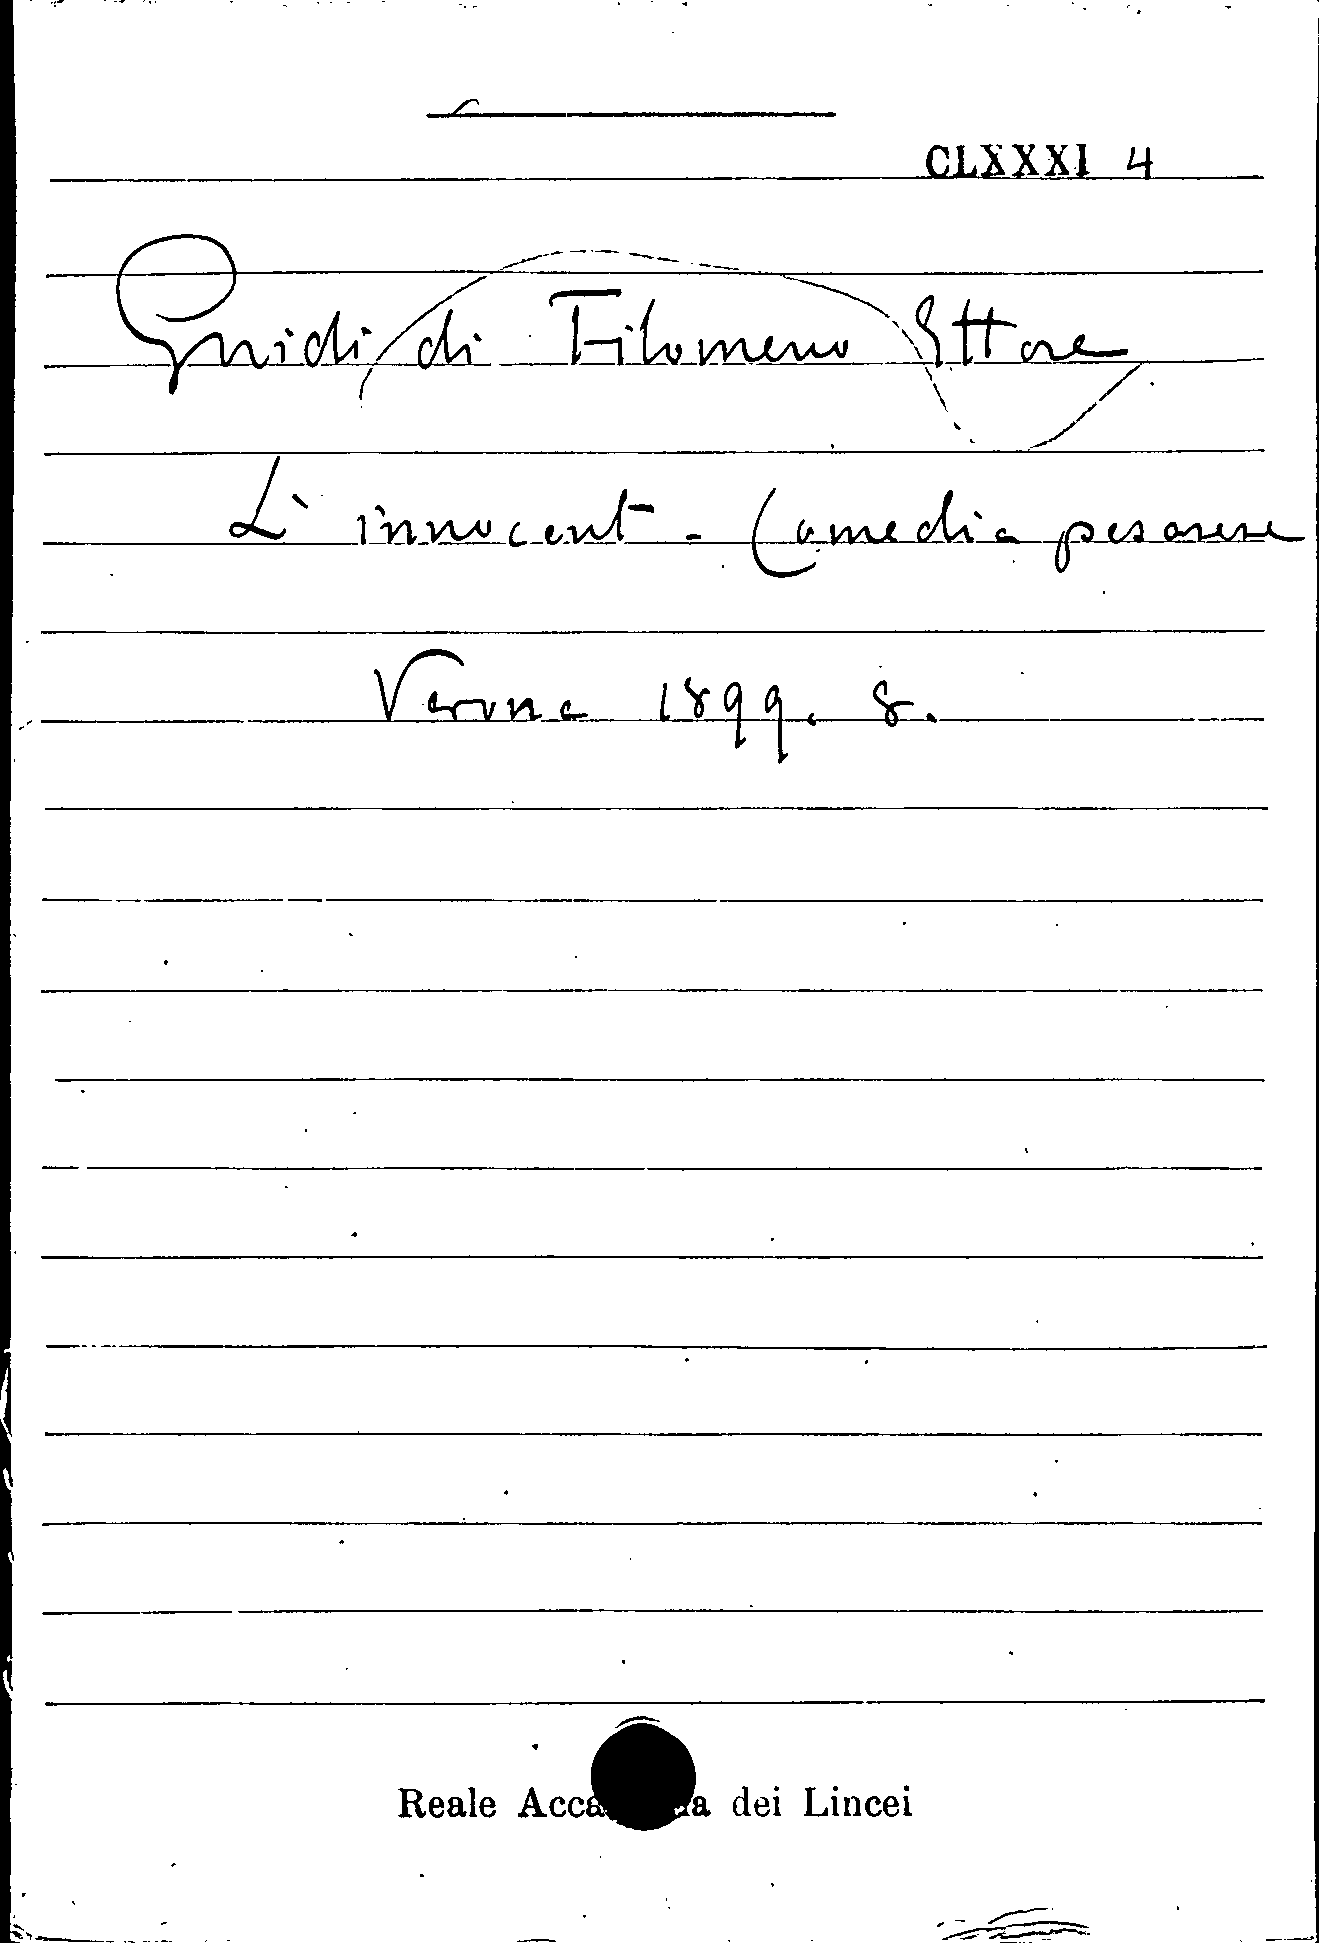 CLXXXI 4
Guidi di Filomeno Ettore
L' innocent - Comedia pesarese
Verona 1899. 8.
Reale Accademia dei Lincei